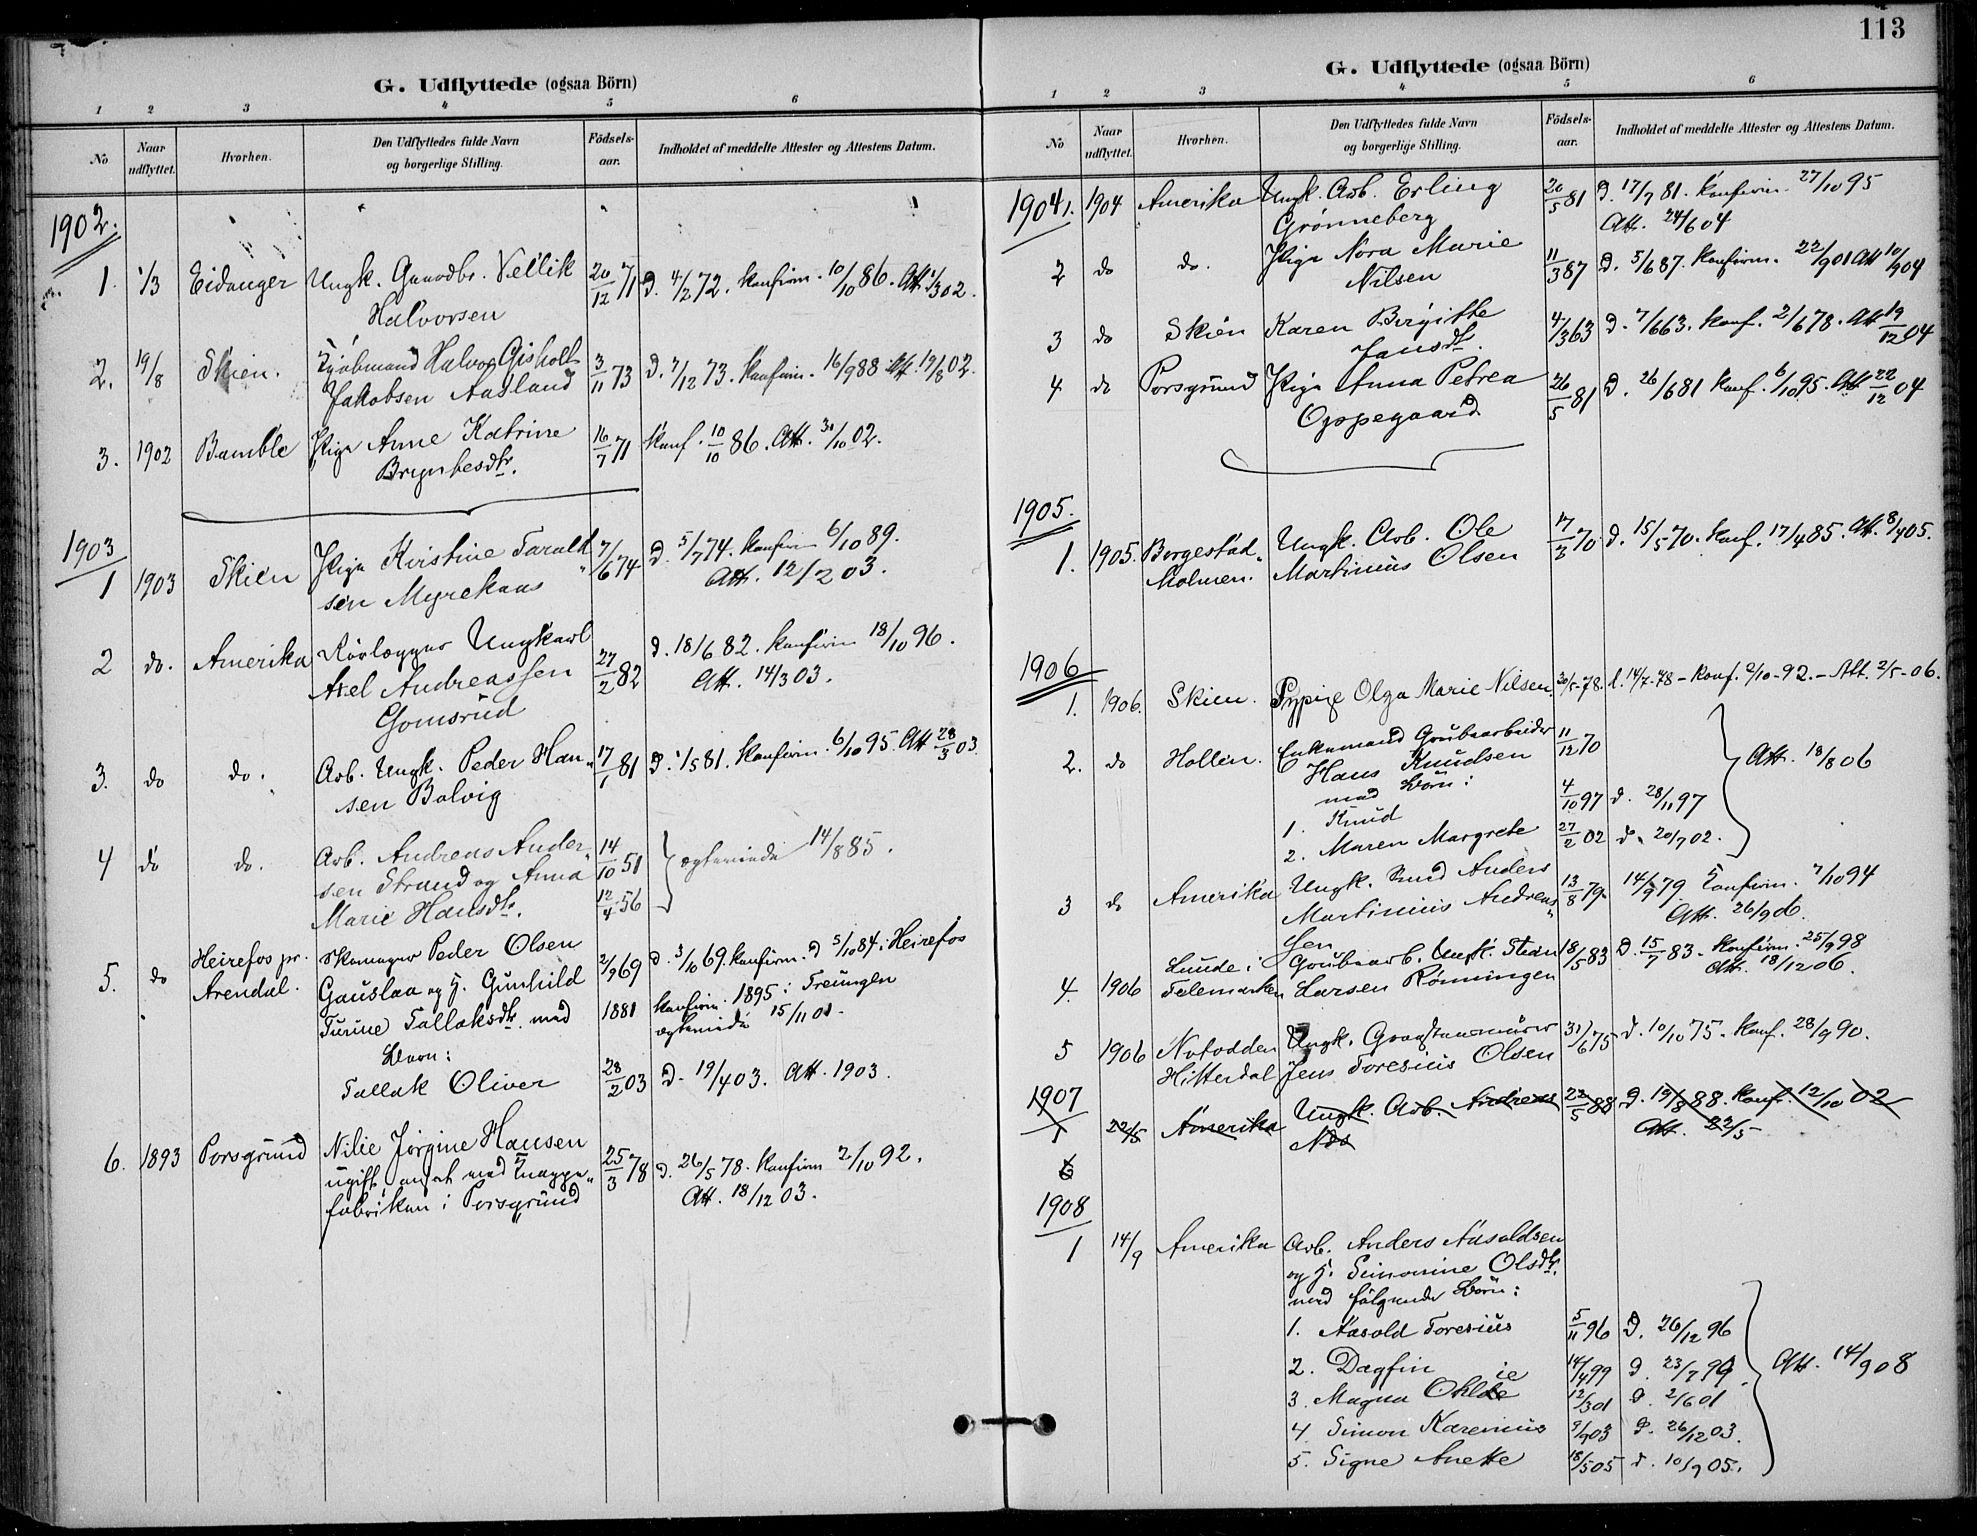 113
G. Udflyttede (ogsaa Börn)
1 2 3 4 5 6
No Naar udflyttet. Hvorhen. Den Udflyttedes fulde Navn og borgerlige Stilling. Födsels-aar. Indholdet af meddelte Attester og Attestens Datum.
1902.
1. 1/3 Eidanger Ungk. Gaardbr. Vellik 20/12 71 D. 4/2 72. Konfirm. 10/10 86. Att. 1/3 02.
Halvorsen
2. 19/8 Skien. Kjøbmand Halvor Gisholt 3/11 73 D. 7/12 73. Konfirm. 16/9 88. Att. 19/8 02.
Jakobsen Aasland
3. 1902 Bamble Pige Anne Katrine 16/7 71 Konf. 10/10 86. Att. 30/10 02.
Brynhesdtr.
1903
1 1903 Skien Pige Kristine Tarald 7/6 74 D. 5/7 74. Konfirm 6/10 89.
sen Myrekaas Att. 12/2 03.
2 do. Amerika Rørlægger Ungkarl 27/2 82 d. 18/6 82. Konfirm 18/10 96.
Axel Andreassen Att. 14/3 03.
Gomsrud
3. do do. Arb. Ungk. Peder Han 17/1 81 D. 1/5 81. Konfirm. 6/10 95. Att 28/3 03.
sen Bolvig
4 do do. Arb. Andreas Ander 14/10 51 ægteviede 14/8 85.
sen Strand og Anna 12/4 56
Marie Hansdtr.
5. do Heirefos pr. Skomager Peder Olsen 2/9 69 D. 3/10 69. Konfirm. D 5/10 84 i Heirefos
Arendal. Gauslaa og H. Gunhild 1881 Konfirm. 1895 i Treungen
Turine Tallaksdtr. med ægteviede 15/11 01.
Barn:
Tallak Oliver 28/2 03 D. 19/4 03. Att. 1903.
6. 1893 Porsgrund Nilie Jørgine Hansen 25/3 78 D. 26/5 78. Konfirm 2/10 92.
ugift, ansat ved Knappe Att. 18/12 03.
fabriken i Porsgrund
G. Udflyttede (ogsaa Börn)
1 2 3 4 5 6
No Naar udflyttet. Hvorhen. Den Udflyttedes fulde Navn og borgerlige Stilling. Födsels-aar. Indholdet af meddelte Attester og Attestens Datum.
1904 1. 1904 Amerika Ungk. Arb. Erling 20/5 81 D. 17/7 81. Konfirm. 27/10 95
Grønneberg Att. 24/6 04
2 do do. Pige Nora Marie 11/3 87 D. 5/6 87. Konfirm. 22/9 01 Att 10/9 04
Nilsen
3 do Skien Karen Birgitte 4/3 63 D. 7/6 63. Konf. 2/6 78. Att 19/12 04
Jansdtr.
4. do Porsgrund Pige Anna Petrea 26/5 81 D. 26/6 81 Konf. 6/10 95. Att 22/12 04
Oppegaard
1905.
1. 1905. Borgestad Ungk. Arb. Ole 17/3 70 D. 15/5 70. Konf. 17/4 85. Att. 8/4 05.
Molmen. Martinius Olsen
1906
1. 1906. Skien. Sypige Olga Marie Nilsen 30/5-78. d. 14/7-78 - Konf. 2/10-92. - Att. 2/5-06.
2. do Hollen. Enkemand Grubearbeider 11/12 70
Hans Knudsen Att. 18/8 06
med Børn:
1. Knud 4/10 97 d. 28/11 97
2. Maren Margrete 27/2 02 d. 20/7 02.
3 do Amerika Ungk. Anders 13/8 79. 14/9 79 Konfirm. 7/10 94
Martinius Andreas Att. 26/9 06.
sen
4. 1906 Lunde i Grubearb. Ungk. Sten 18/5 83 D. 15/7 83. Konfirm. 25/9 98
Telemarken Larsen Rønningen Att. 18/12 06.
5 1906 Notodden Ungk. Graastensmurer 31/6 75 d. 10/10 75. Konf. 28/9 90.
Hitterdal Jens Toresius Olsen
1907
1 22/5 Amerika Ungk. Arb. Andreas 22/5 88 D. 19/8 88. Konf. 12/10 02
Nås Att. 22/5
1908
1 14/9 Amerika Arb. Anders Aasoldsen
og H. Simonine Olsdtr.
med følgende Børn:
1. Aasold Toresius 5/11 96 D. 26/12 96
2. Dagfin 14/4 99 D. 23/7 99. Att. 14/9 08
3. Magna 12/3 01 D. 2/6 01
4. Simon Karenius 9/9 03 D. 26/12 03.
5. Signe Anette 18/5 05 d. 10/9 05.